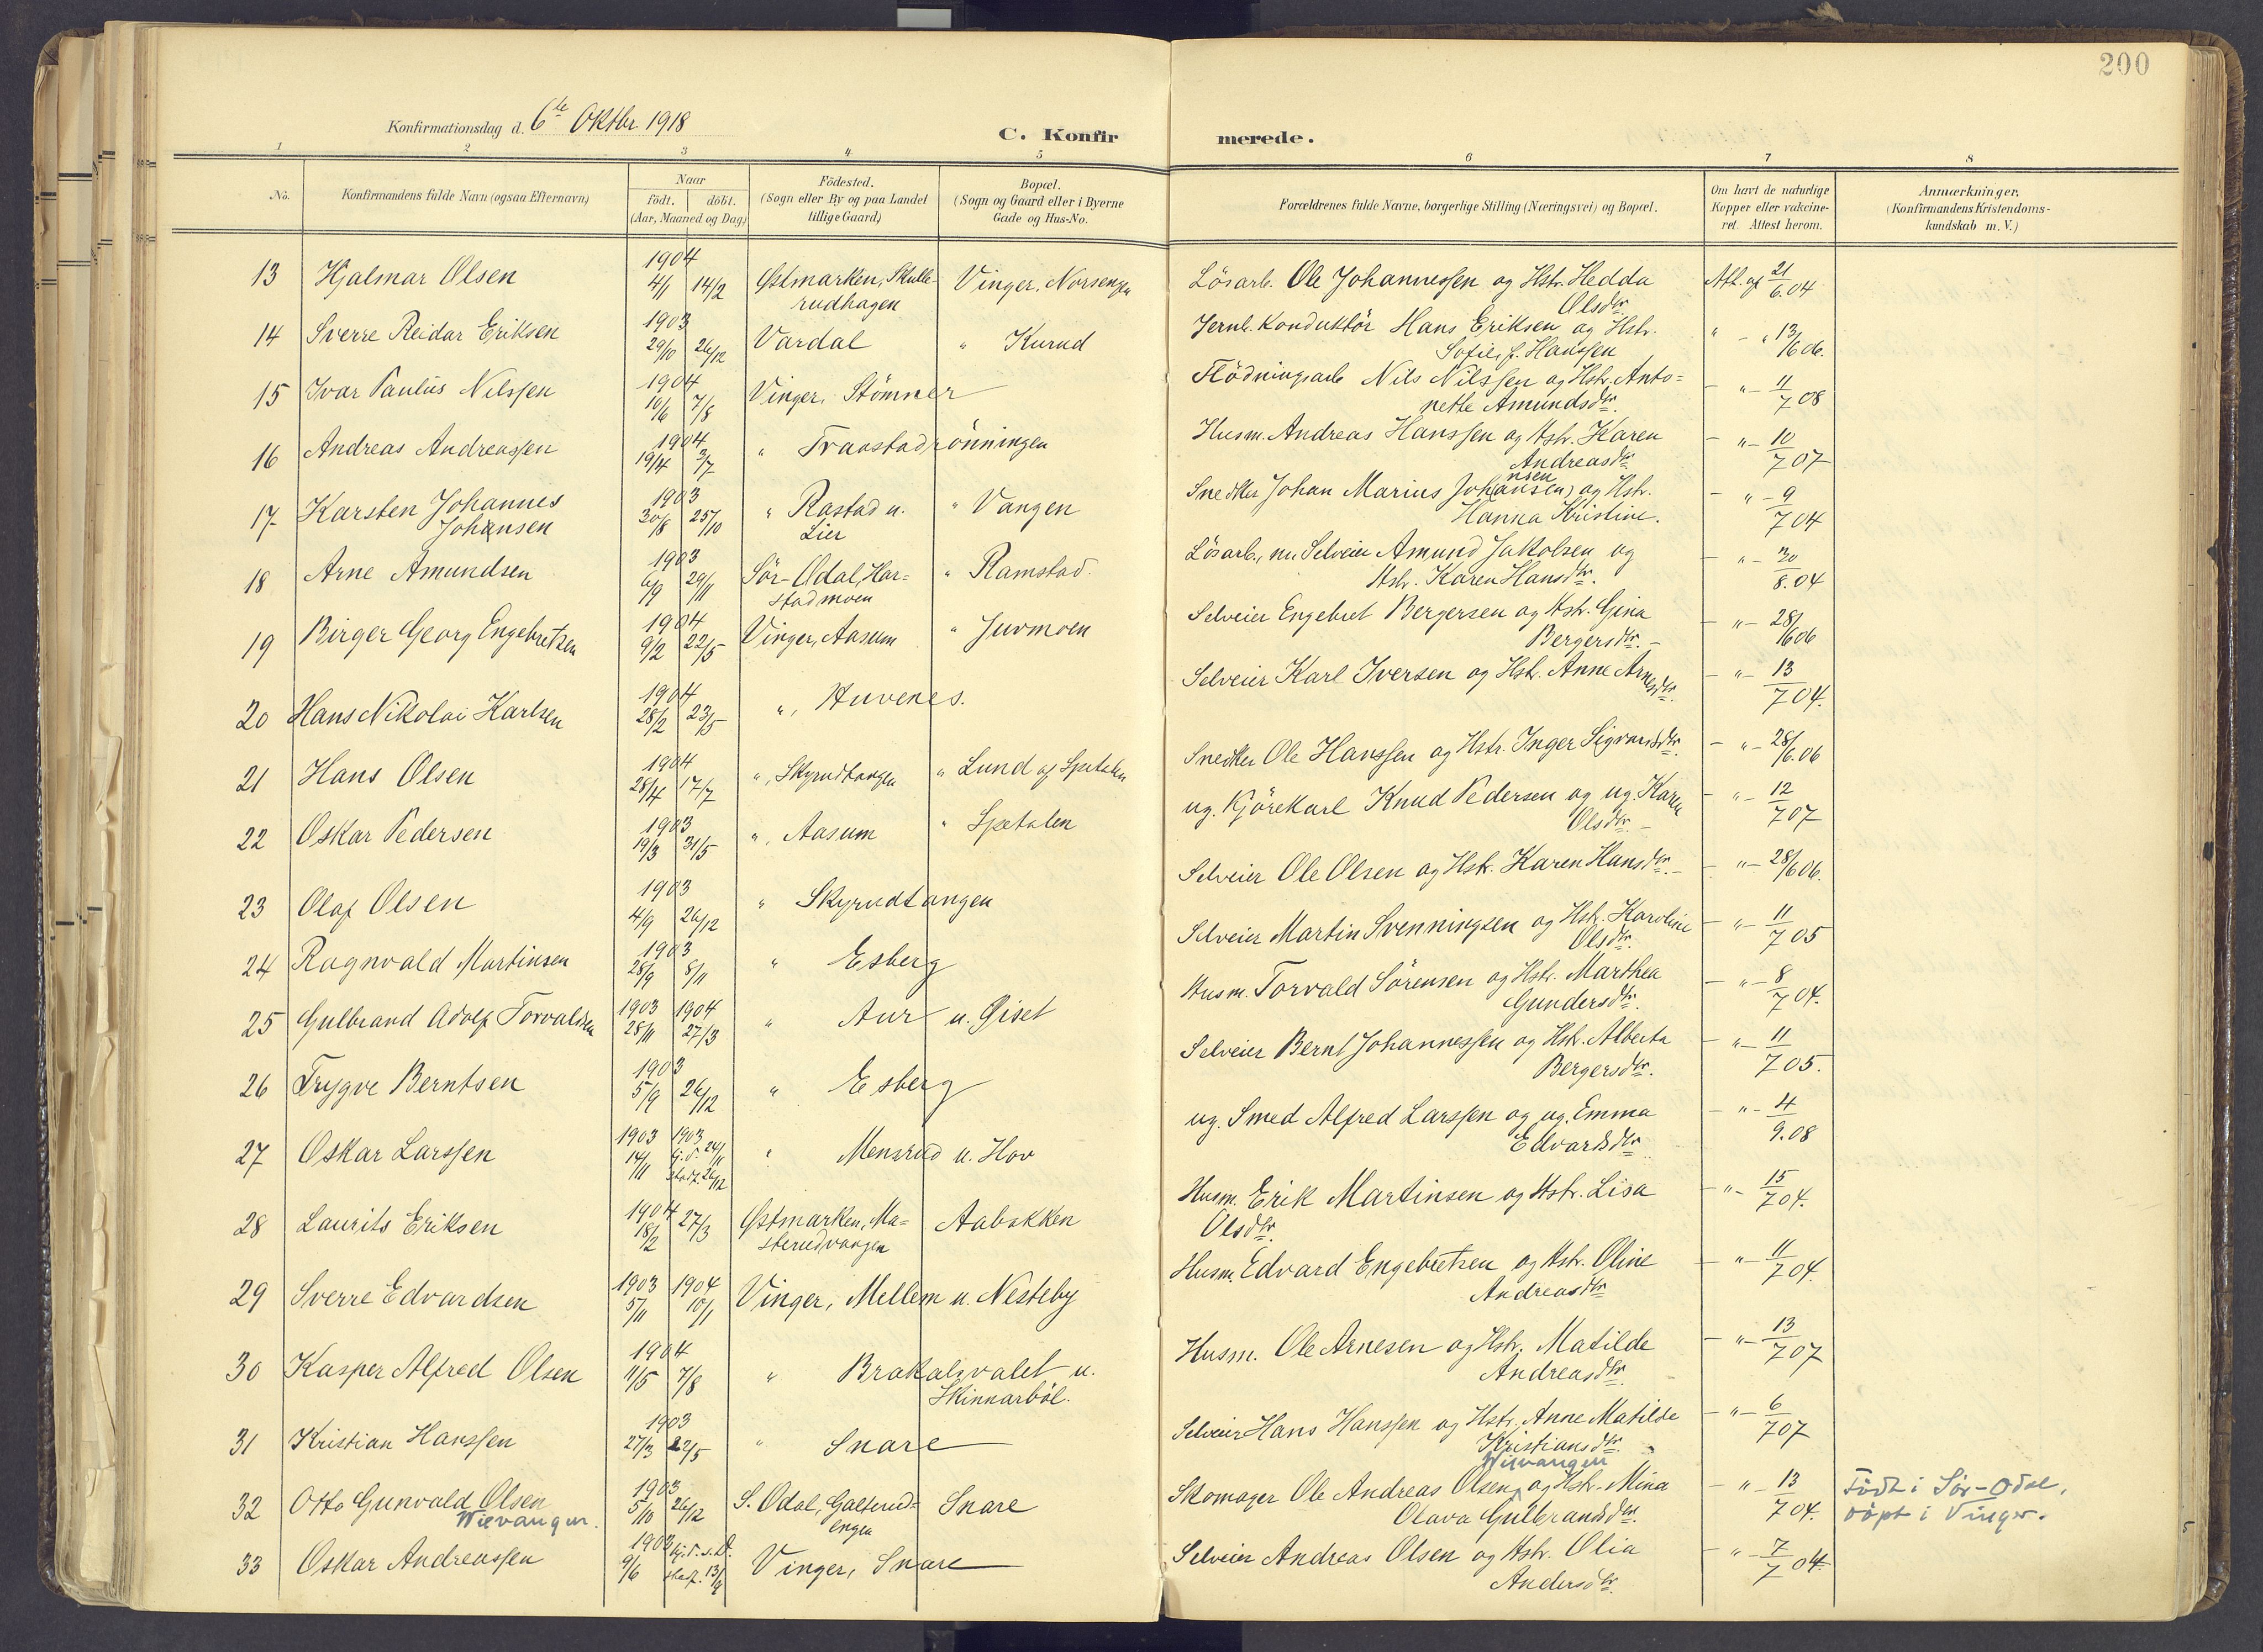 200
Konfirmationsdag d. 6te Oktbr 1918
C. Konfirmerede.
1 2 3 4 5 6 7 8
No.
Konfirmandens fulde Navn (ogsaa Efternavn)
Naar
födt. döbt.
(Aar, Maaned og Dag)
Födested.
(Sogn eller By og paa Landet
tillige Gaard)
Bopæl.
(Sogn og Gaard eller i Byerne
Gade og Hus-No.
Forældrenes fulde Navne, borgerlige Stilling (Næringsvei) og Bopæl.
Om havt de naturlige
Kopper eller vakcine-
ret. Attest herom.
Anmærkninger.
(Konfirmandens Kristendoms-
kundskab m. V.)
13 Hjalmar Olsen 1904 4/1 14/2 Østmarken, Skulle-
rudhagen Vinger, Norsenga Lösarb. Ole Johannesen og Hstr. Hedda
Olsdtr. Att. af 21/6.04
14 Sverre Reidar Eriksen 1903 29/10 26/12 Vardal " Kurud Jernb. Konduktör Hans Eriksen og Hstr.
Sofie, f. Hanssen " - " 13/6 06.
15 Ivar Paulus Nilssen 1904 10/6 7/8 Vinger, Stömner Flödningsarb Nils Nilssen og Hstr. Anto=
nette Amundsdtr. - " - 11/7 08
16 Andreas Andreassen 1904 19/4 3/7 " Traastadrönningen Husm. Andreas Hanssen og Hstr. Karen
Andreasdtr - " - 10/7 07
17 Karsten Johannes
Johansen 1903 30/8 25/10 " Rastad u.
Lier " Vangen Snedker Johan Marius Joh(ansen) nsen og Hstr.
Hanna Kristine. - " - 9/7 04
18 Arne Amundsen 1903 6/9 29/11 Sör-Odal, Har=
stadmoen " Ramstad. Lösarb., nu Selveier Amund Jakobsen og
Hstr. Karen Hansdtr. - " - 30/8.04
19 Birger Georg Engebretsen 1904 9/2 22/5 Vinger, Aasum " Juvmoen Selveier Engebret Bergersen og Hstr. Gina
Bergersdtr. - - " - 28/6 06
20 Hans Nikolai Karlsen 1904 28/2 23/5 ", Huvenes. Selveier Karl Iversen og Hstr. Anne Arnesdtr. - " - 13/7 04.
21 Hans Olsen 1904 28/4 17/7 ", Skyrudtangen " Lund af Spetalen Snedker Ole Hanssen og Hstr. Inger Sigvardsdtr. - " - 28/6.06
22 Oskar Pedersen 1903 19/3 31/5 ", Aasum " Spetalen ug. Kjörekarl Knud Pedersen og ug. Karen
Olsdtr. - - " - 12/7 07
23 Olaf Olsen 1903 4/9 26/12 " Skyrudtangen Selveier Ole Olsen og Hstr. Karen Hansdtr. - - " - 28/6 06.
24 Ragnvald Martinsen 1903 28/9 8/11 " Esberg Selveier Martin Svenningsen og Hstr. Karoline
Olsdtr. - " - 11/7 05
25 Gulbrand Adolf Torvaldsen 1903 28/11 1904 27/3 " Aur u. Giset Husm. Torvald Sörensen og Hstr. Marthea
Gundersdtr. - " - 8/7 04.
26 Trygve Berntsen 1903 5/9 26/12 " Esberg Selveier Bernt Johannessen og Hstr. Alberta
Bergersdtr. - " - 11/7 05.
27 Oskar Larssen 1903 14/11 1903 hj.d. 24/11
stadf. 26/12 " Mensrud u. Hov ug. Smed Alfred Larssen og ug. Emma
Edvardsdtr - " - 4/9.08
28 Laurits Eriksen 1904 18/2 27/3 Østmarken, Ma=
sterudvangen Aabakken Husm. Erik Martinsen og Hstr. Lisa
Olsdtr. - " - 15/7 04.
29 Sverre Edvardsen 1903 5/11 1904 10/1 Vinger, Mellem u. Nesteby Husm. Edvard Engebretsen og Hstr. Oline
Andreasdtr - " - 11/7 04.
30 Kasper Alfred Olsen 1904 11/5 7/8 " Brakalsvalet u.
Skinnarböl. Husm. Ole Arnesen og Hstr. Matilde
Andreasdtr. - " - 13/7 07
31 Kristian Hanssen 1903 27/3 22/5 " Snare Selveier Hans Hanssen og Hstr. Anne Matilde
Kristiansdtr. - " - 6/7 07
32 Otto Gunvald Olsen
Wievangen. 1903 5/10 26/12 S. Odal, Galterud=
engen Snare Skomager Ole Andreas Olsen Wievangen, og Hstr. Mina
Olava Gulbrandsdtr. - " - 13/7 04. Födt i Sör-Odal,
döpt i Vinger.
33 Oskar Andreassen 1903 9/6 hj.d. s.D.
stadf. 13/9 Vinger, Snare Selveier Andreas Olsen og Hstr. Olia
Andersdtr. - " - 7/7 04.